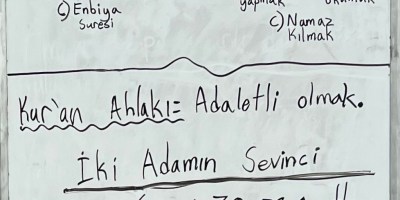 yapmak
C) Enbiya
Suresi
C) Namaz
Kılmak
Kur'an Ahlakı= Adaletli olmak.
İki Adamın Sevinci